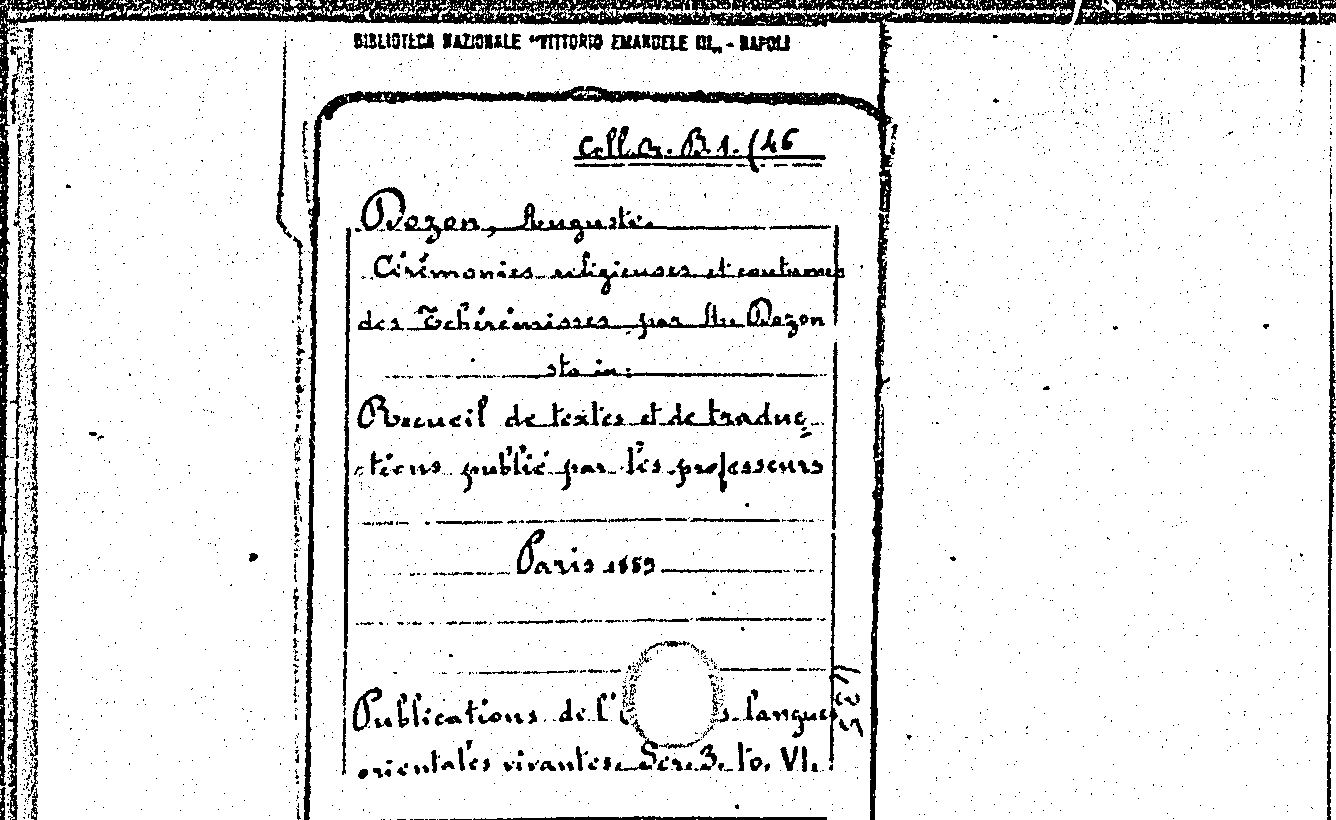 BIBLIOTECA NAZIONALE "VITTORIO EMANUELE III„ - NAPOLI
Coll. Or. B. 1. (46
Dozon, Auguste.
Cérémonies religieuses et coutumes
des Tchérémisses par Au Dozon
sta in:
Recueil de textes et de traduc-
ctions publié par les professeurs
Paris 1889
Publications de l' langues
orientales vivantes. Ser. 3. to. VI.